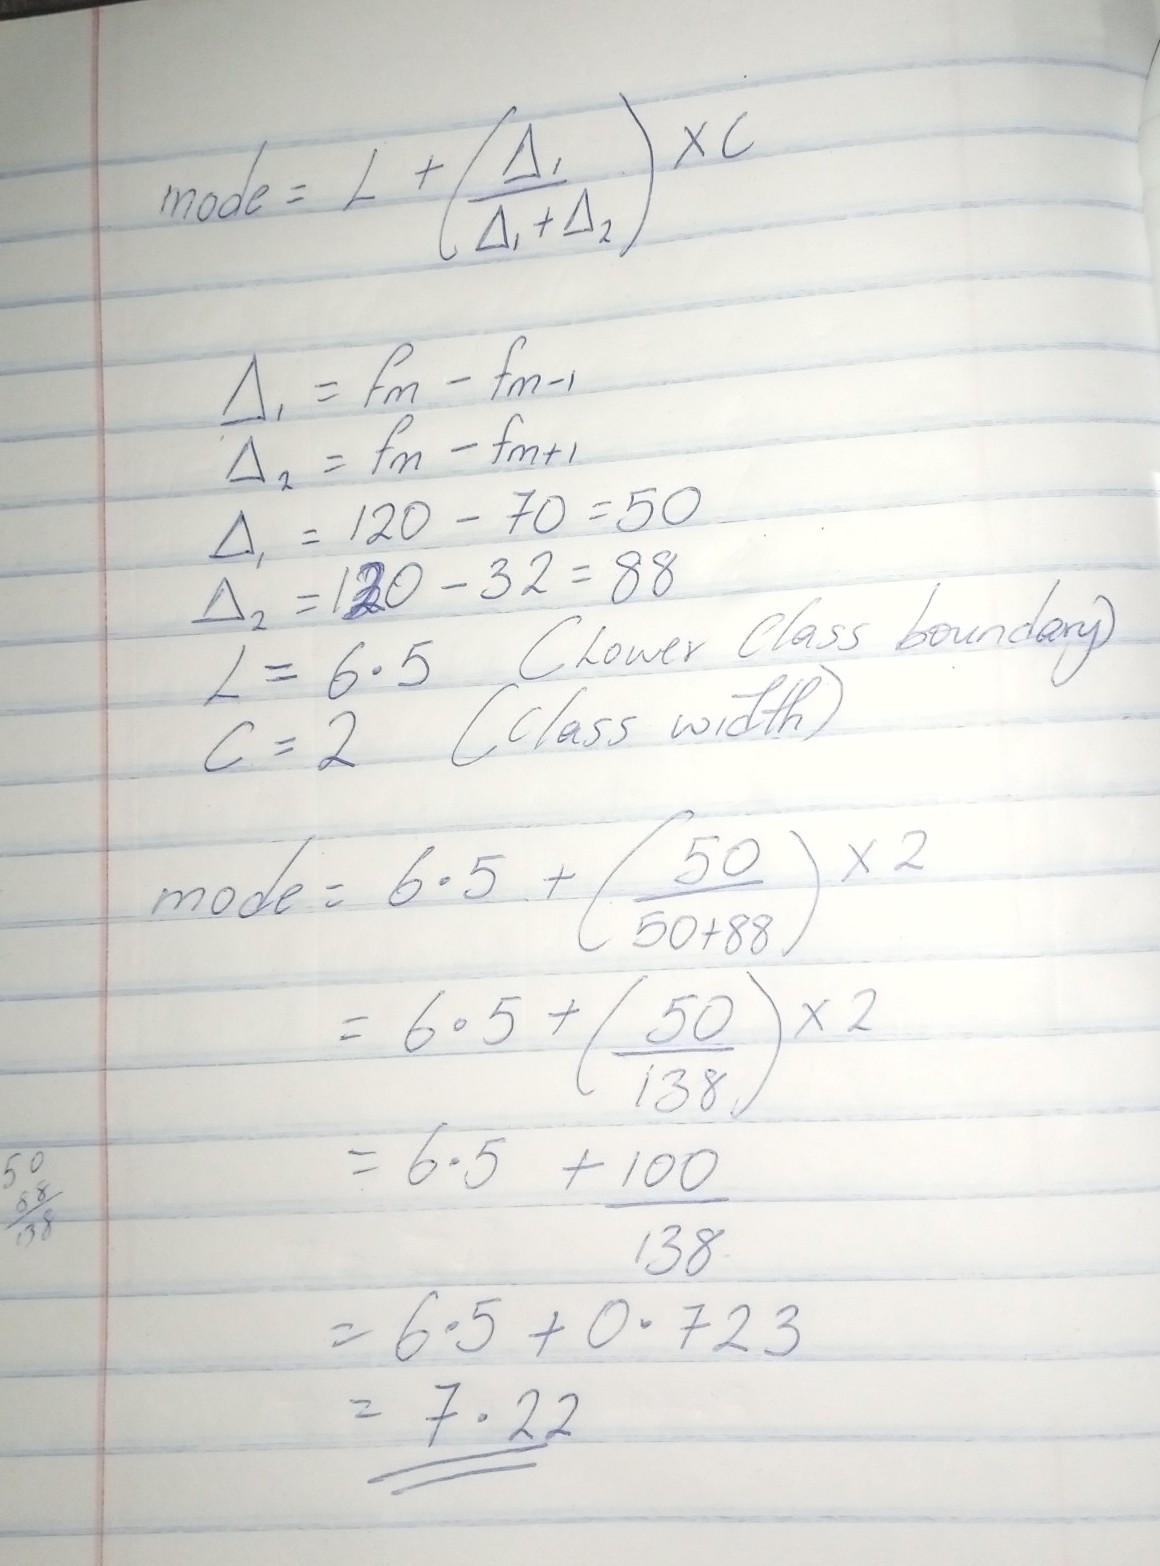 mode = L + (Δ₁/(Δ₁+Δ₂)) × C
Δ₁ = fm - fm-1
Δ₂ = fm - fm+1
Δ₁ = 120 - 70 = 50
Δ₂ = 120 - 32 = 88
L = 6.5 (Lower Class boundary)
C = 2 (Class width)
mode = 6.5 + (50/(50+88)) × 2
= 6.5 + (50/138) × 2
50
88
138
= 6.5 + 100/138
= 6.5 + 0.723
= 7.22